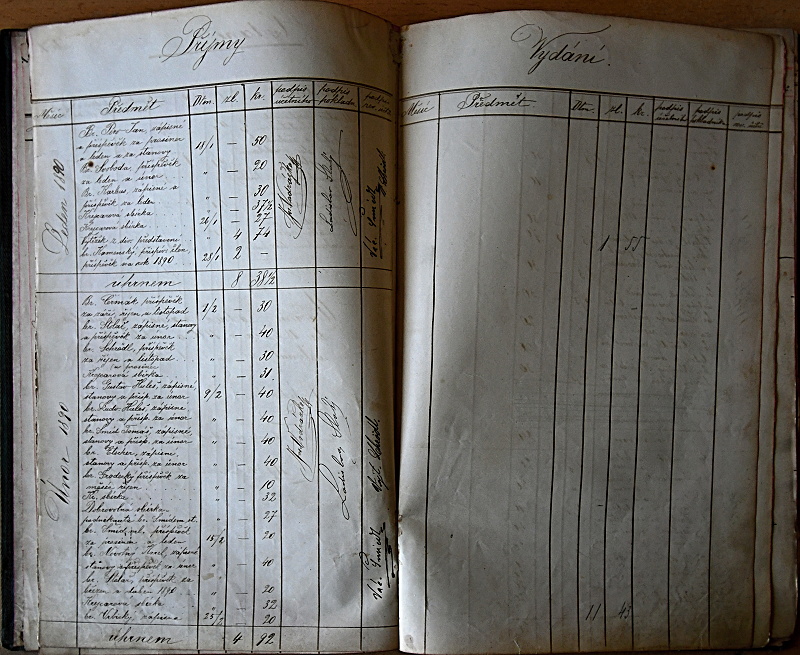 Příjmy
Měsíc Předmět Dtm. zl. kr. podpis účetního podpis pokladn. podpis rev. účtů
Leden 1890
Br. Petr Jan, zápisné
a příspěvek za prosinec
a leden a za stanovy 15/1 — 50
Br. Svoboda, příspěvek
za leden a únor " — 20
Br. Karbus, zápisné a
příspěvek za leden " — 30
Krejcarová sbírka " — 37½
Krejcarová sbírka 26/1 — 27
výtěžek z div. představení " 4 74
br. Kamenský, přispív. člen
příspěvek na rok 1890 28/1 2 —
úhrnem 8 38½
Únor 1890
Br. Čermák příspěvek
za září, říjen a listopad 1/2 — 30
br. Stolař, zápisné, stanovy
a příspěvek za únor " — 40
br. Schrödl, příspěvek
za říjen a listopad " — 30
a prosinec
Krejcarová sbírka " — 31
br. Gustav Huleš, zápisné
stanovy a přísp. za únor 9/2 — 40
br. Ludv. Huleš, zápisné
stanovy a přísp. za únor " — 40
br. Šmíd Tomáš, zápisné
stanovy a přísp. za únor " — 40
br. zápisné,
stanovy a přísp. za únor " — 40
br. příspěvek za
měsíc říjen " — 10
Kr. sbírka " — 32
Dobrovolná sbírka
podniknutá br. Šmídem st. " — 27
br. Šmíd ml., příspěvek
za prosinec a leden 15/2 — 20
br. Novotný Karel, zápisné
stanovy a příspěvek za únor " — 40
br. Stolař, příspěvek za
březen a duben 1890 " — 20
Krejcarová sbírka " — 32
br. zápisné " — 20
úhrnem 4 92
Vydání.
Měsíc Předmět. Dtm. zl. kr. podpis účetního podpis pokladníka podpis rev. účtů
1 55
11 43